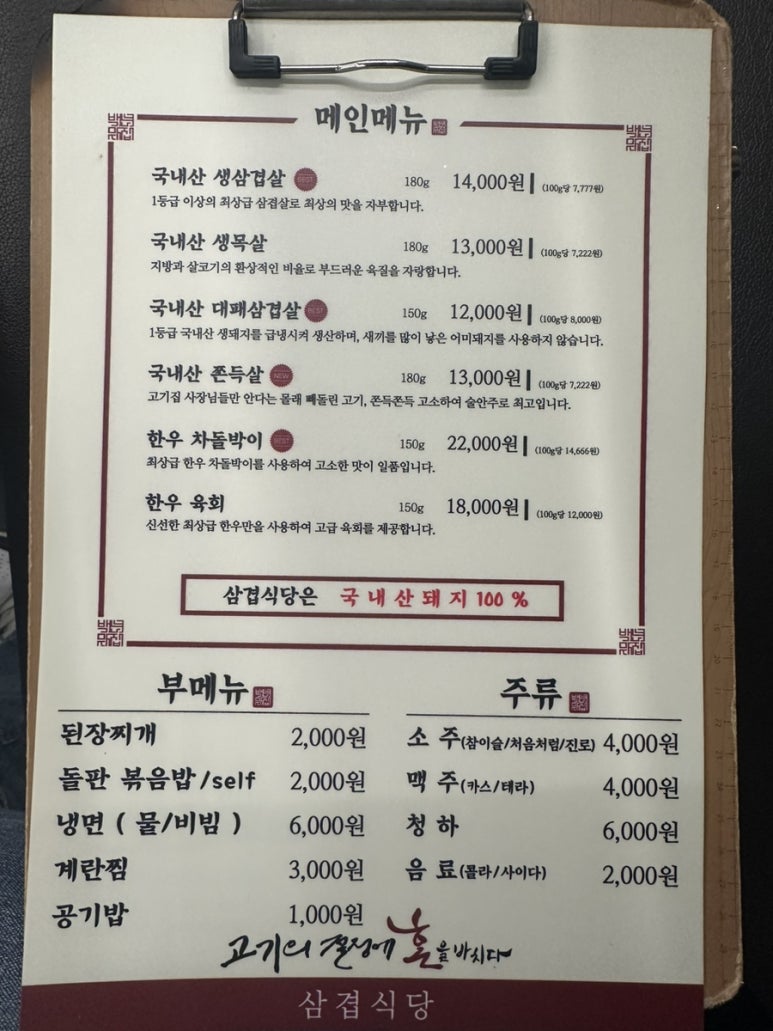 메인메뉴
국내산 생삼겹살 BEST 180g 14,000원 (100g당 7,777원)
1등급 이상의 최상급 삼겹살로 최상의 맛을 자부합니다.
국내산 생목살 180g 13,000원 (100g당 7,222원)
지방과 살코기의 환상적인 비율로 부드러운 육질을 자랑합니다.
국내산 대패삼겹살 BEST 150g 12,000원 (100g당 8,000원)
1등급 국내산 생돼지를 급냉시켜 생산하며, 새끼를 많이 낳은 어미돼지를 사용하지 않습니다.
국내산 쫀득살 NEW 180g 13,000원 (100g당 7,222원)
고기집 사장님들만 안다는 몰래 빼돌린 고기, 쫀득쫀득 고소하여 술안주로 최고입니다.
한우 차돌박이 BEST 150g 22,000원 (100g당 14,666원)
최상급 한우 차돌박이를 사용하여 고소한 맛이 일품입니다.
한우 육회 150g 18,000원 (100g당 12,000원)
신선한 최상급 한우만을 사용하여 고급 육회를 제공합니다.
삼겹식당은 국내산돼지 100 %
부메뉴
된장찌개 2,000원
돌판 볶음밥/self 2,000원
냉면 ( 물/비빔 ) 6,000원
계란찜 3,000원
공기밥 1,000원
주류
소 주(참이슬/처음처럼/진로) 4,000원
맥 주(카스/테라) 4,000원
청 하 6,000원
음 료(콜라/사이다) 2,000원
고기의 결정에 혼을 바치다
삼겹식당